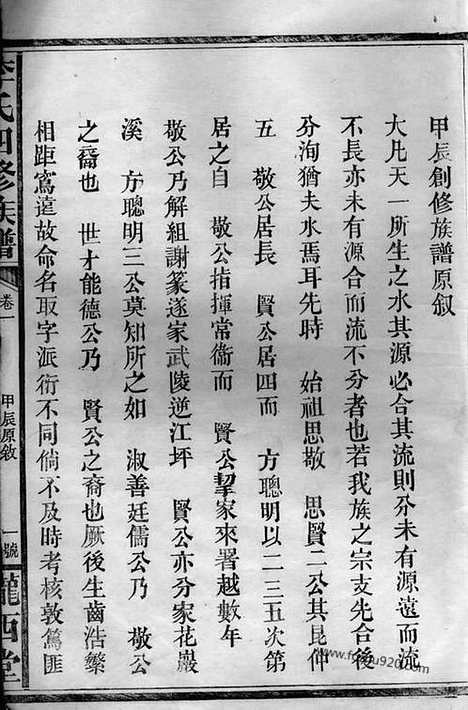 甲辰創修族譜原叙
大凡天一所生之水其源必合其流則分未有源遠而流
不長亦未有源合而流不分者也若我族之宗支先合後
分洵猶夫水焉耳先時 始祖思敬 思賢二公其昆仲
五 敬公居長 賢公居四而 方聰明以二三五次第
居之自 敬公指揮常衞而 賢公挈家來署越數年
敬公乃解組謝篆遂家武陵逆江坪 賢公亦分家花巖
溪 方聰明三公莫知所之如 淑善廷儒公乃 敬公
之裔也 世才能德公乃 賢公之裔也厥後生齒浩繁
相距寫遠故命名取字派衍不同倘不及時考核敦篤匪
李氏四修族譜 卷一 甲辰原敘 一號 隴西堂